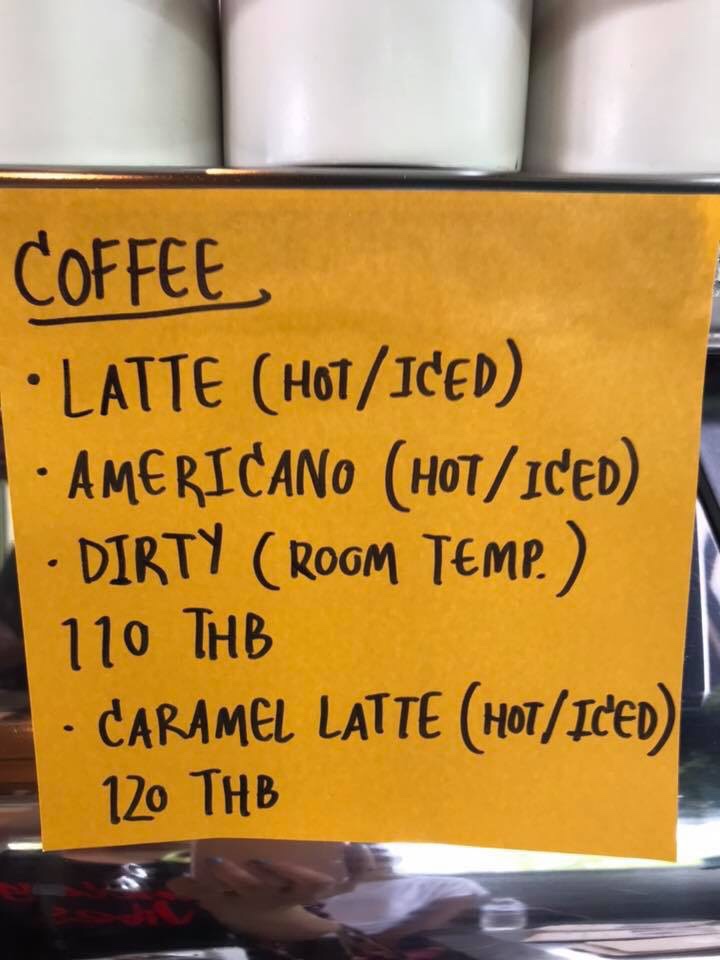 COFFEE
• LATTE (HOT/ICED)
• AMERICANO (HOT/ICED)
• DIRTY (ROOM TEMP.)
110 THB
• CARAMEL LATTE (HOT/ICED)
120 THB